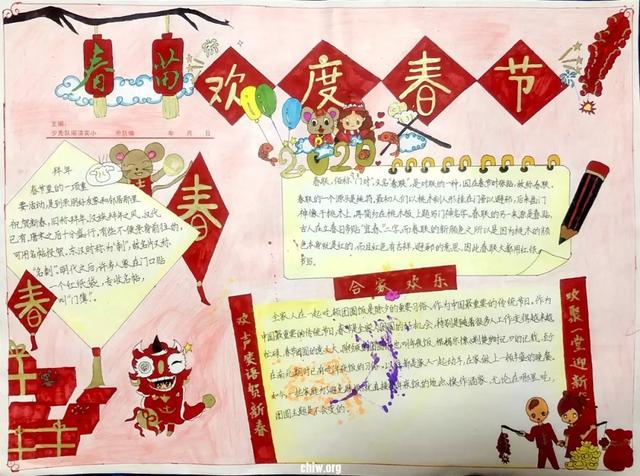 春苗
欢度春节
主编:
少先队闻涛实小 中队编 年 月 日
2020
拜年
春节里的一项重
要活动,是到亲朋好友家和邻居那里
祝贺新春,旧称拜年。汉族拜年之风,汉代
已有。唐宋之后十分盛行,有些不便亲身前往的,
可用名帖投贺。东汉时称为"刺",故名片又称
"名刺"。明代之后,许多人家在门口贴
一个红纸袋,专收名帖,
叫"门簿"。
春
春
春联,俗称"门对",又名"春帖",是对联的一种,因在春节时张贴,故称春联。
春联的一个源头是桃符。最初人们以桃木刻人形挂在门旁以避邪,后来画门
神像于桃木上,再简化为在桃木板上题写门神名字。春联的另一来源是春贴,
古人在立春日多贴"宜春"二字,而春联的颜色之所以是因为桃木的颜
色本身就是红的,而且红色有吉祥、避邪的意思,因此春联大都用红纸
书写。
合家欢乐
欢声笑语贺新春
欢聚一堂迎新
全家人在一起吃顿团圆饭是除夕的重要习俗。作为中国最重要的传统节日,作为
中国最重要的传统节日,春节是全家人团圆的
在南北朝时已有吃年夜饭的习
团圆主题是不会变的。
chiw.org